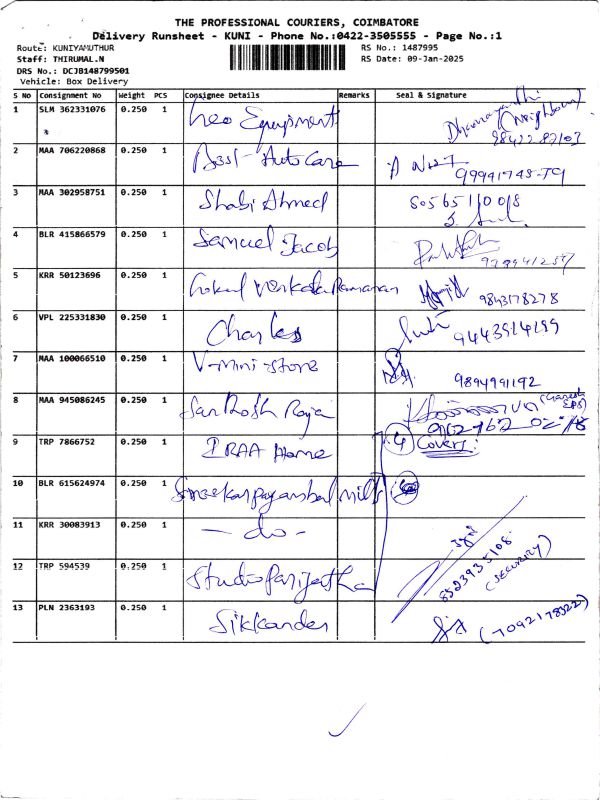 THE PROFESSIONAL COURIERS, COIMBATORE
Delivery Runsheet - KUNI - Phone No.:0422-3505555 - Page No.:1
Route: KUNIYAMUTHUR RS No.: 1487995
Staff: THIRUMAL.N RS Date: 09-Jan-2025
DRS No.: DCJB148799501
Vehicle: Box Delivery
S No Consignment No Weight PCS Consignee Details Remarks Seal & Signature
1 SLM 362331076 0.250 1 Equipment (Neighbour)
2 MAA 706220868 0.250 1 Best Auto Care
3 MAA 302958751 0.250 1 Shabi Ahmed 8056511008
4 BLR 415866579 0.250 1 Samuel Jacob
5 KRR 50123696 0.250 1 Gokul Venkata Ramanan 9843178278
6 VPL 225331830 0.250 1 Charles
7 MAA 100066510 0.250 1 V-mini-store 9894991192
8 MAA 945086245 0.250 1 Santhosh Raja
9 TRP 7866752 0.250 1 IRAA Home 4 Covers:
10 BLR 615624974 0.250 1
11 KRR 30083913 0.250 1 - do -
12 TRP 594539 0.250 1 Studio Parijatha 8523935108 (Security)
13 PLN 2363193 0.250 1 Sikkander (7092178322)